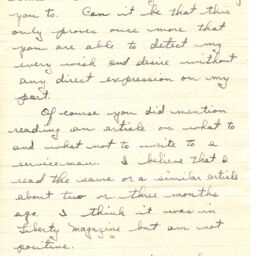 you to. Can it be that this
only proves once more that
you are able to detect my
every wish and desire without
any direct expression on my
part.
Of course you did mention
reading an article on what to
and what not to write to a
serviceman. I believe that I
read the same or a similar article
about two or three months
ago. I think it was in
Liberty Magazine but am not
positive.